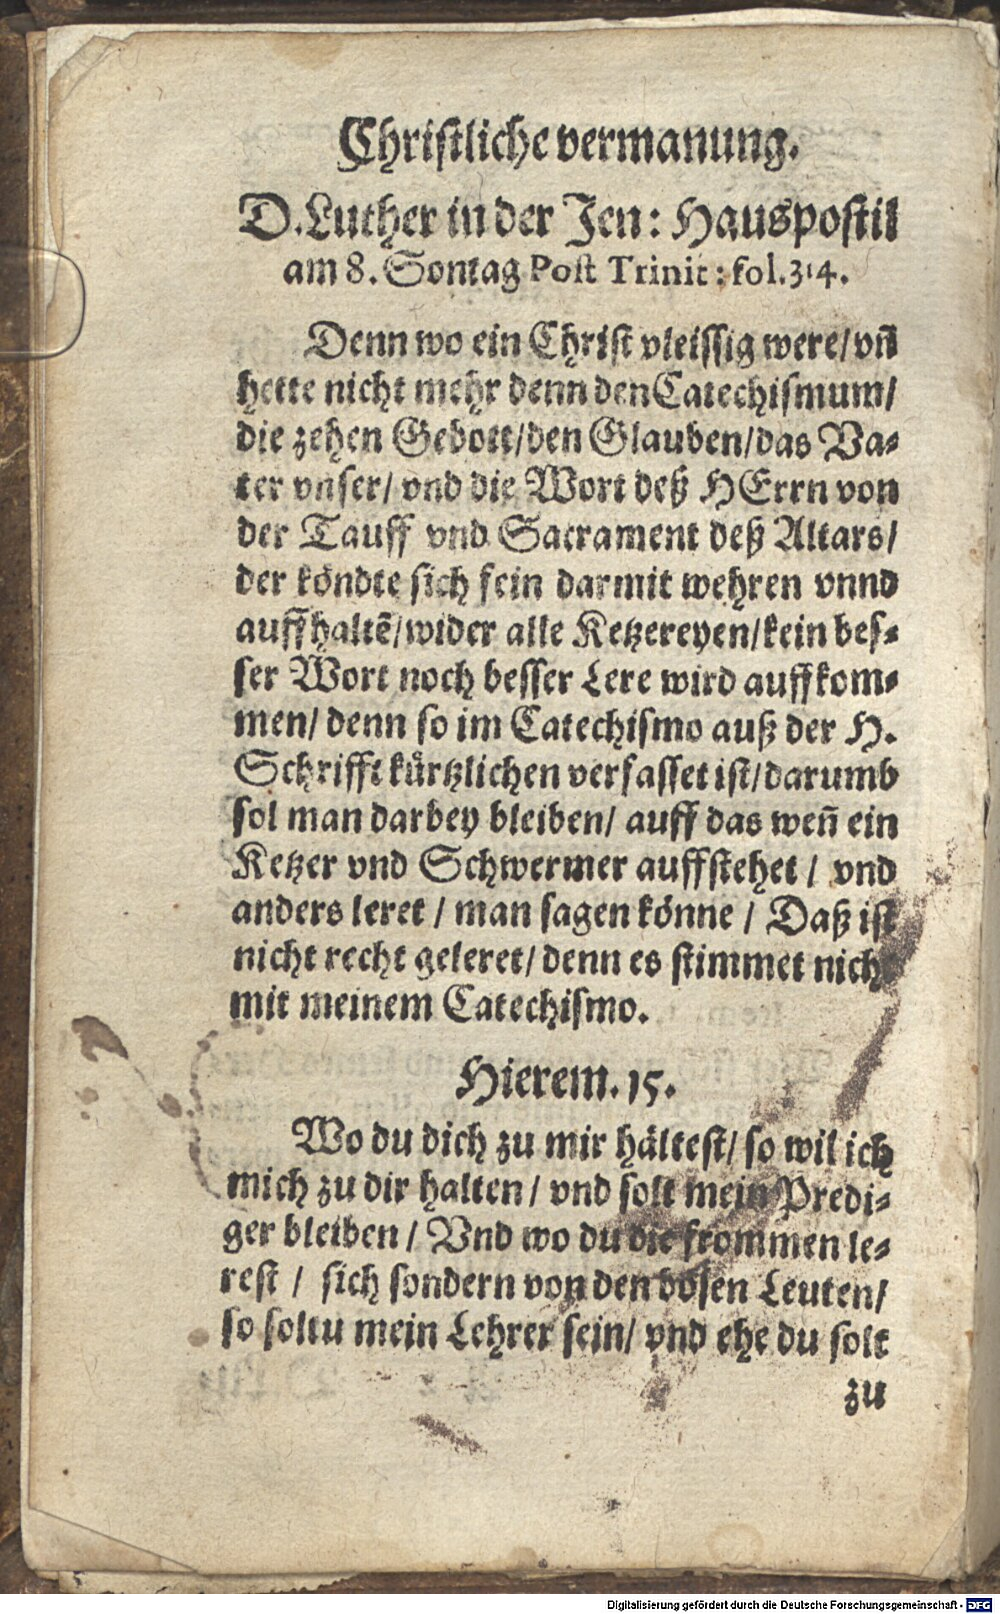 Christliche vermanung.
D. Luther in der Jen: Hauspostil
am 8. Sontag Post Trinit: fol. 314.
Denn wo ein Christ vleissig were/ vñ
hette nicht mehr denn den Catechismum/
die zehen Gebott/ den Glauben/ das Va-
ter vnser/ vnd die Wort deß HErrn von
der Tauff vnd Sacrament deß Altars/
der köndte sich fein darmit wehren vnnd
auffhaltẽ/ wider alle Ketzereyen/ kein bes-
ser Wort noch besser Lere wird auffkom-
men/ denn so im Catechismo auß der H.
Schrifft kürtzlichen verfasset ist/ darumb
sol man darbey bleiben/ auff das weñ ein
Ketzer vnd Schwermer auffstehet/ vnd
anders leret/ man sagen könne/ Daß ist
nicht recht geleret/ denn es stimmet nicht
mit meinem Catechismo.
Hierem. 15.
Wo du dich zu mir hältest/ so wil ich
mich zu dir halten/ vnd solt mein Predi-
ger bleiben/ Vnd wo du die frommen le-
rest/ sich sondern von den bösen Leuten/
so soltu mein Lehrer sein/ vnd ehe du solt
zu
Digitalisierung gefördert durch die Deutsche Forschungsgemeinschaft - DFG